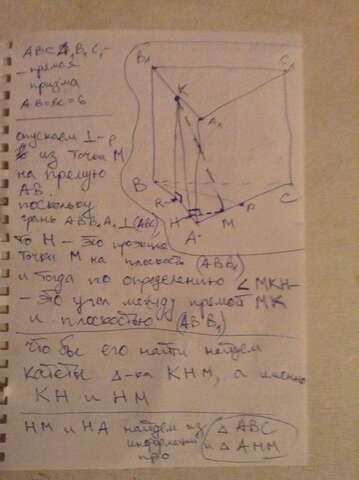 ABCA₁B₁C₁ -
- прямая
призма
AB=BC=6
опускаем ⊥-р
из точки M
на прямую
AB.
поскольку
грань ABB₁A₁ ⊥ (ABC)
то H - это проекция
точки M на плоскость (ABB₁)
и тогда по определению ∠MKH -
- это угол между прямой MK
и плоскостью (ABB₁)
что бы его найти найдем
катеты Δ-ка KHM, а именно
KH и HM
HM и HA найдем из
информации
про
Δ ABC
и Δ AMH
B₁
C₁
K
A₁
B
C
R
H
M
P
A